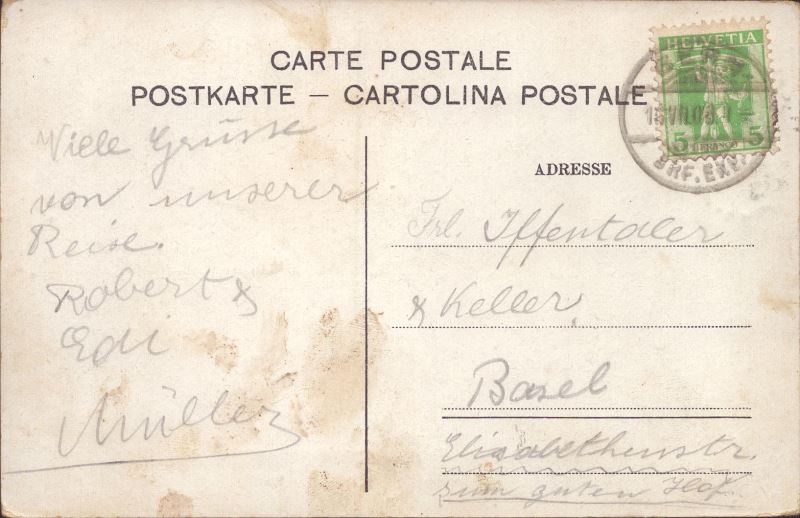 CARTE POSTALE
POSTKARTE – CARTOLINA POSTALE
Viele Grüsse
von unserer
Reise.
Robert &
Edi
Müller
ADRESSE
Frl. Iffentaler
& Keller,
Basel
Elisabethenstr.
zum guten Hof.
HELVETIA
5 5
FRANCO
BRF. EXP.